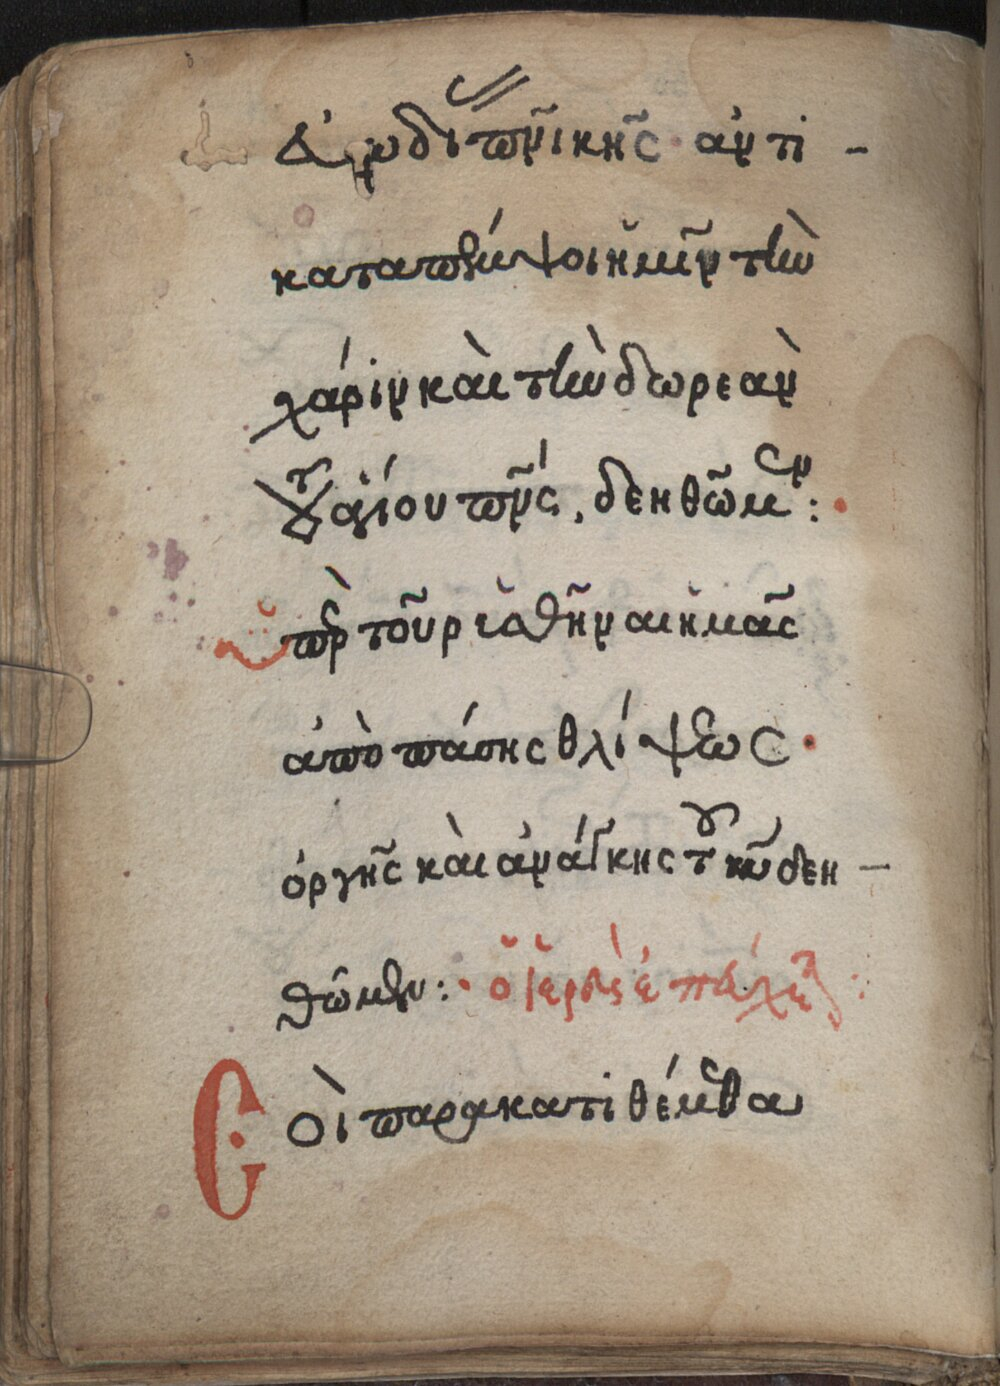 ἀωδί πνικῆς· ἀντι -
καταπέμψοι ἡμῖν τὴν
χάριν καὶ τὴν δωρεὰν
τοῦ ἁγίου πνς, δεηθῶμεν :·
ὑπὲρ τοῦ ρυσθῆναι ἡμᾶς
ἀπὸ πάσης θλίψεως·
ὀργῆς καὶ ἀνάγκης τοῦ κυ δεη -
θῶμεν :· ὁ ἱερεὺς ἐπεύχε :
Σοὶ παρακατιθέμεθα